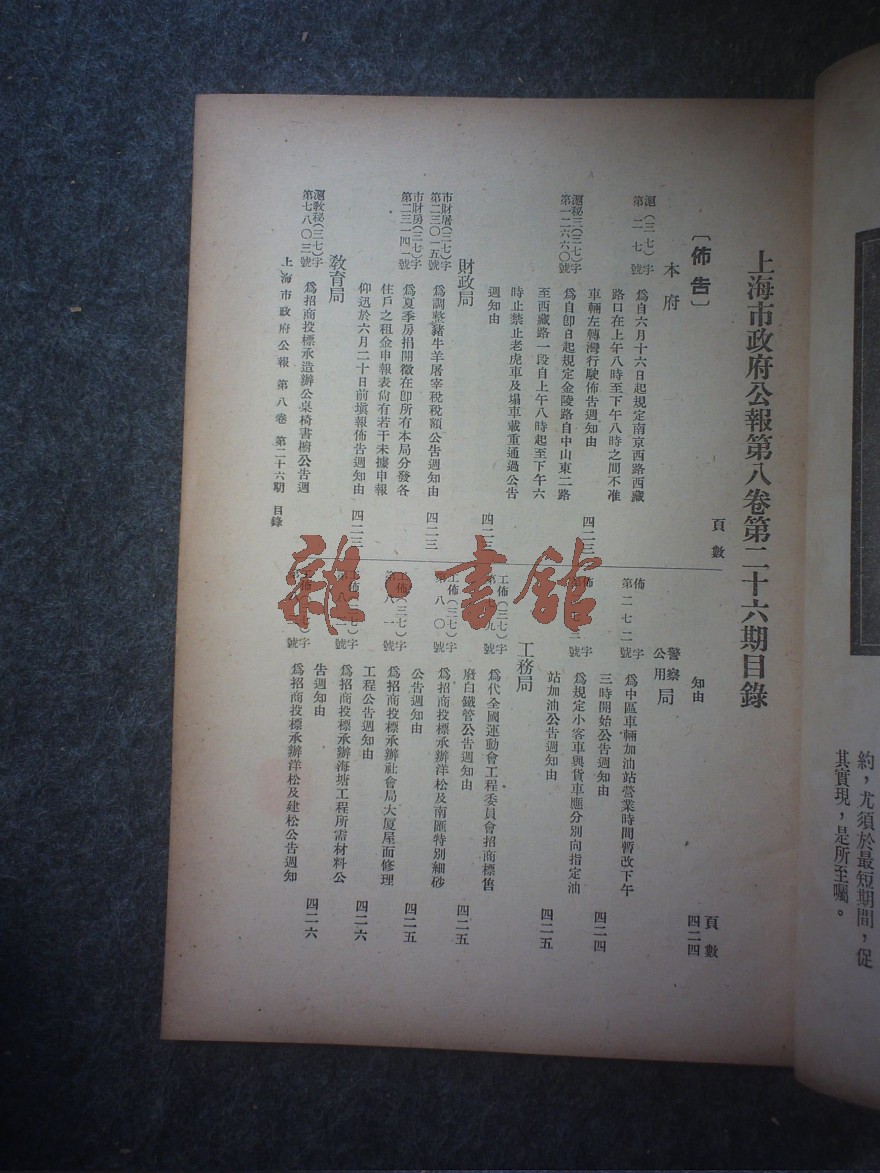 上海市政府公報第八卷第二十六期目錄
頁數
〔佈告〕
本府
滬(三七)字
第二七號
爲自六月十六日起規定南京西路西藏
路口在上午八時至下午八時之間不准
車輛左轉灣行駛佈告週知由
四二三
滬秘三(三七)字
第一二六六〇號
爲自卽日起規定金陵路自中山東二路
至西藏路一段自上午八時起至下午六
時止禁止老虎車及塌車載重通過公告
週知由
四二三
財政局
市財屠(三七)字
第二三〇一五號
爲調整豬牛羊屠宰稅稅額公告週知由
四二三
市財房(三七)字
第二三一四一號
爲夏季房捐開徵在卽所有本局分發各
住戶之租金申報表尙有若干未據申報
仰迅於六月二十日前塡報佈告週知由
四二三
教育局
滬教秘(三七)字
第七八〇三號
爲招商投標承造辦公桌椅書櫥公告週
知由
頁數
四二四
警察
公用
局
佈字
第二七二號
爲中區車輛加油站營業時間暫改下午
三時開始公告週知由
四二四
佈字
三號
爲規定小客車與貨車應分別向指定油
站加油公告週知由
四二五
工務局
工佈(三七)字
九號
爲代全國運動會工程委員會招商標售
廢白鐵管公告週知由
四二五
工佈(三七)字
第八〇號
爲招商投標承辦洋松及南匯特別細砂
公告週知由
四二五
工佈(三七)字
第八一號
爲招商投標承辦社會局大厦屋面修理
工程公告週知由
四二六
字
號
爲招商投標承辦海塘工程所需材料公
告週知由
四二六
字
號
爲招商投標承辦洋松及建松公告週知
上海市政府公報 第八卷 第二十六期 目錄
雜·書舘
約，尤須於最短期間，促
其實現，是所至囑。